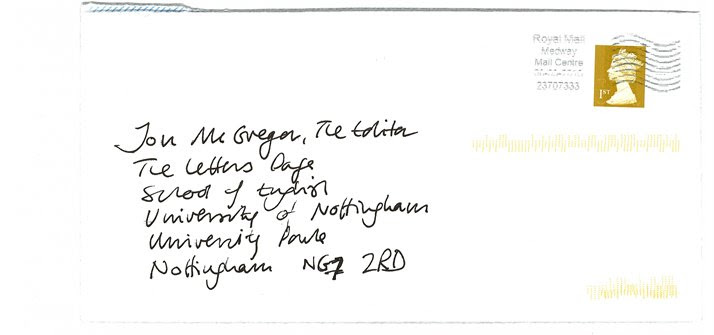 Royal Mail
Medway
Mail Centre
23707333
1ST
Jon McGregor, The Editor
The Letters Page
School of English
University of Nottingham
University Park
Nottingham NG7 2RD